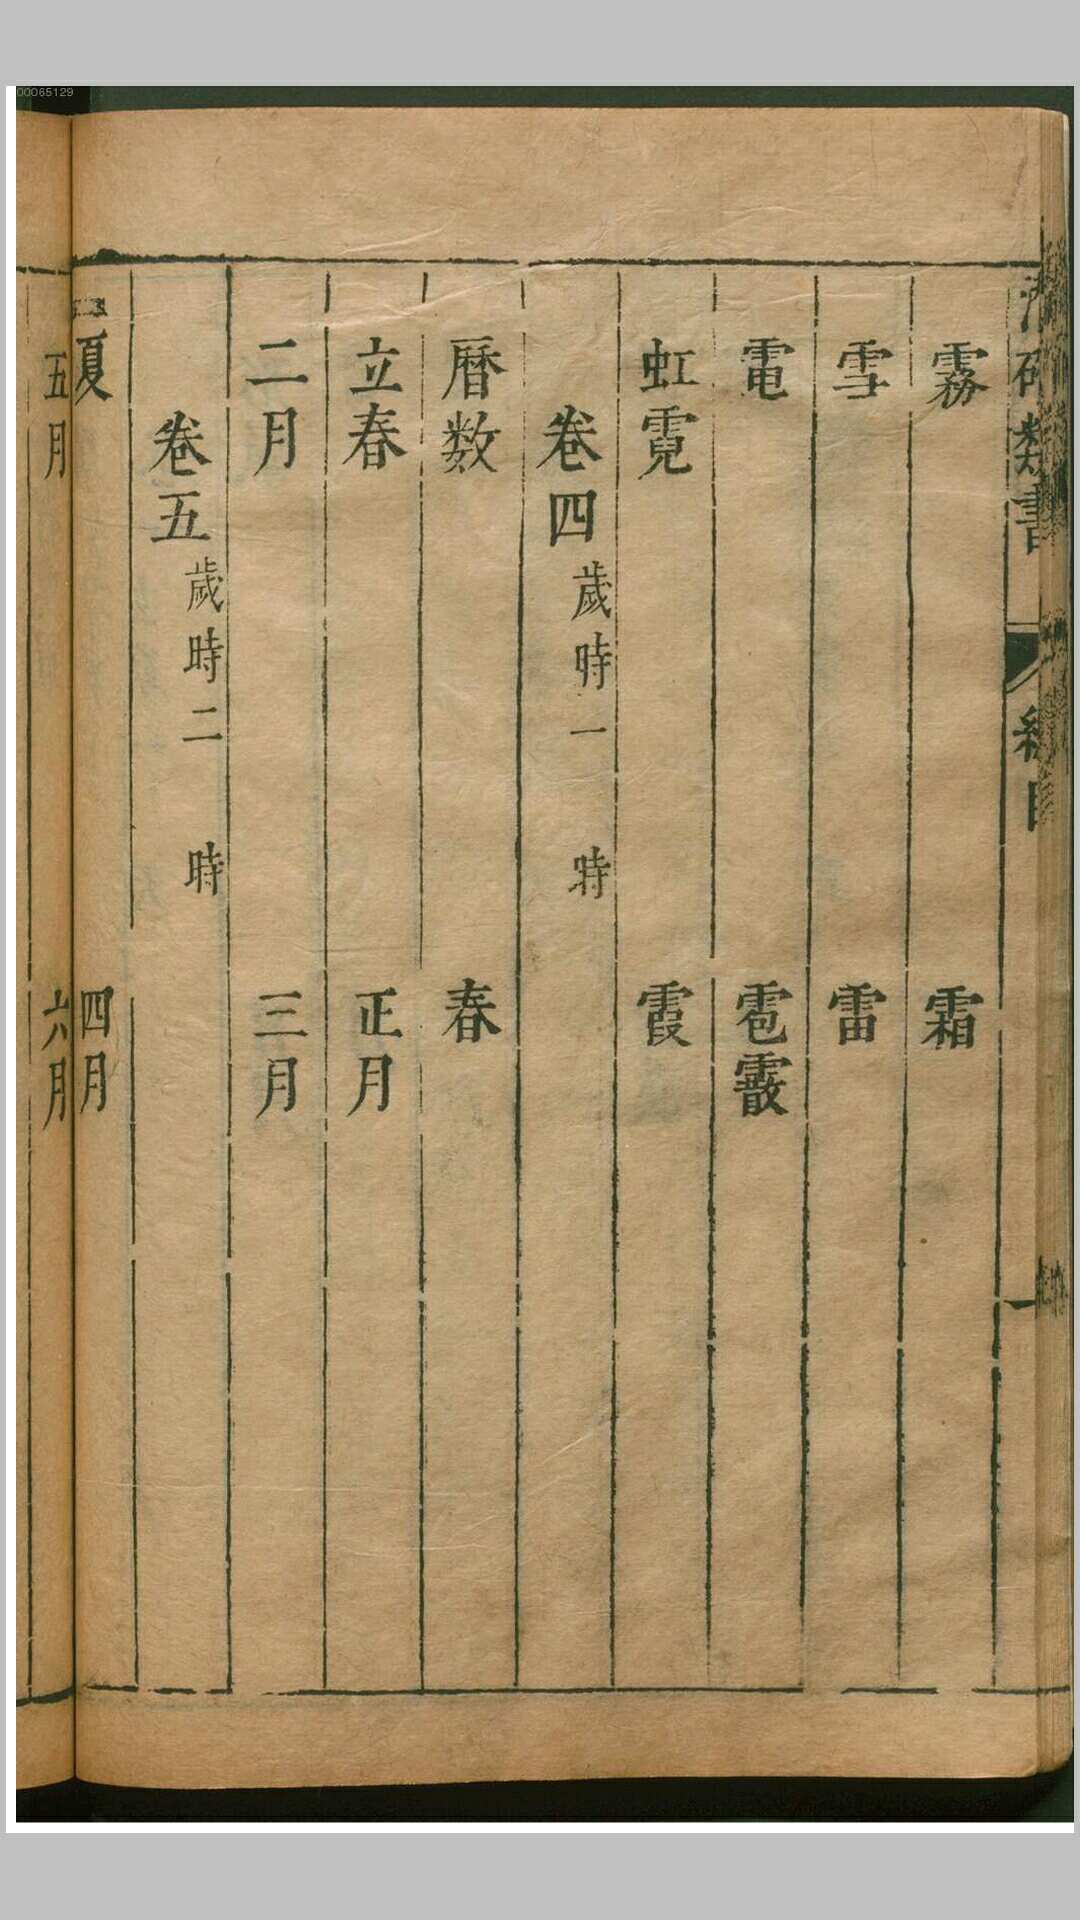 00065129
類書
一
霧 霜
雪 雷
電 雹霰
虹霓 霞
卷四 歲時一 時
曆数 春
立春 正月
二月 三月
卷五 歲時二 時
夏 四月
五月 六月